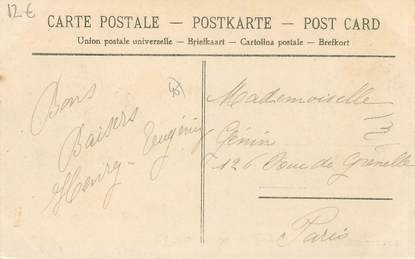 12 €
CARTE POSTALE — POSTKARTE — POST CARD
Union postale universelle — Briefkaart — Cartolina postale — Brefkort
Bons
Baisers
Henry - Eugénie
Mademoiselle
Génin
126 Rue de Grenelle
Paris